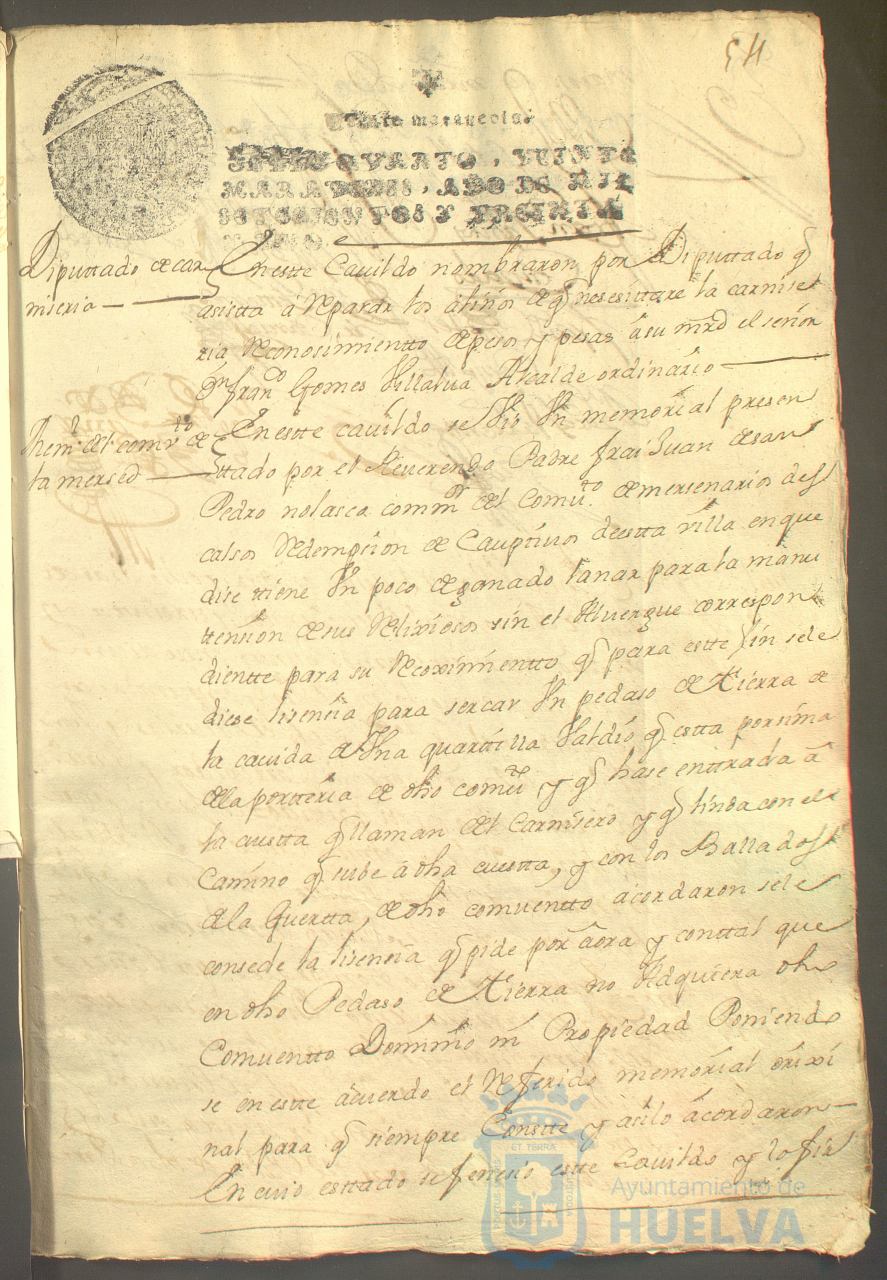 54
Veinte maravedis
SELLO QVARTO, VEINTE
MARAVEDIS, AÑO DE MIL
SETECIENTOS Y TREINTA
Y VNO
Diputtado de car
miseria
En estte Cavildo nombraron por Diputtado q
asistta â Reparar los aliños de q nesesittare la carnise
ria Reconosimientto de pesos y pesas â su mrd el señor
Dn Franco Gomes Villalva Alcalde ordinario
Mem.l del comv.to de
la mersed
En estte cavildo se vio Vn memorial presen
ttado por el Reverendo Padre frai Juan de san
Pedro nolasco comm.or del Comv.to de mersenarios des
calsos Redempsion de Cauptivos de estta villa en que
dise ttiene Vn poco de ganado lanar para la manu
ttension de sus Relixiosos sin el Alvergue correspon
dientte para su Recoximientto q para estte fin se le
diese lisensia para sercar Vn pedaso de tierra de
la cavida de Vna quarttilla Valdio q estta por sima
de la portteria de dho comv.to y q hase enttrada â
la cuestta q llaman del Carnisero y q linda con el
Camino q sube â dha cuestta, y con los Ballados
de la Guertta, de dho comventto acordaron se le
consede la lisensia q pide por âora y con ttal que
en dho Pedaso de tierra no Adquiera dho
Comventto Dominio ni Propiedad Poniendo
se en estte acuerdo el Referido memorial orixi
nal para q siempre Constte y asi lo âcordaron
En cuio esttado se fenesio estte Cavildo y lo fir
ET TERRA
Ayuntamiento de
HUELVA